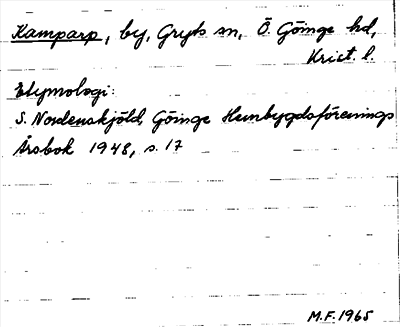 Kamparp, by, Gryts sn, Ö. Göinge hd,
Krist. l.
Etymologi:
S. Nordenskjöld, Göinge Hembygdsförenings
Årsbok 1948, s. 17
M.F. 1965